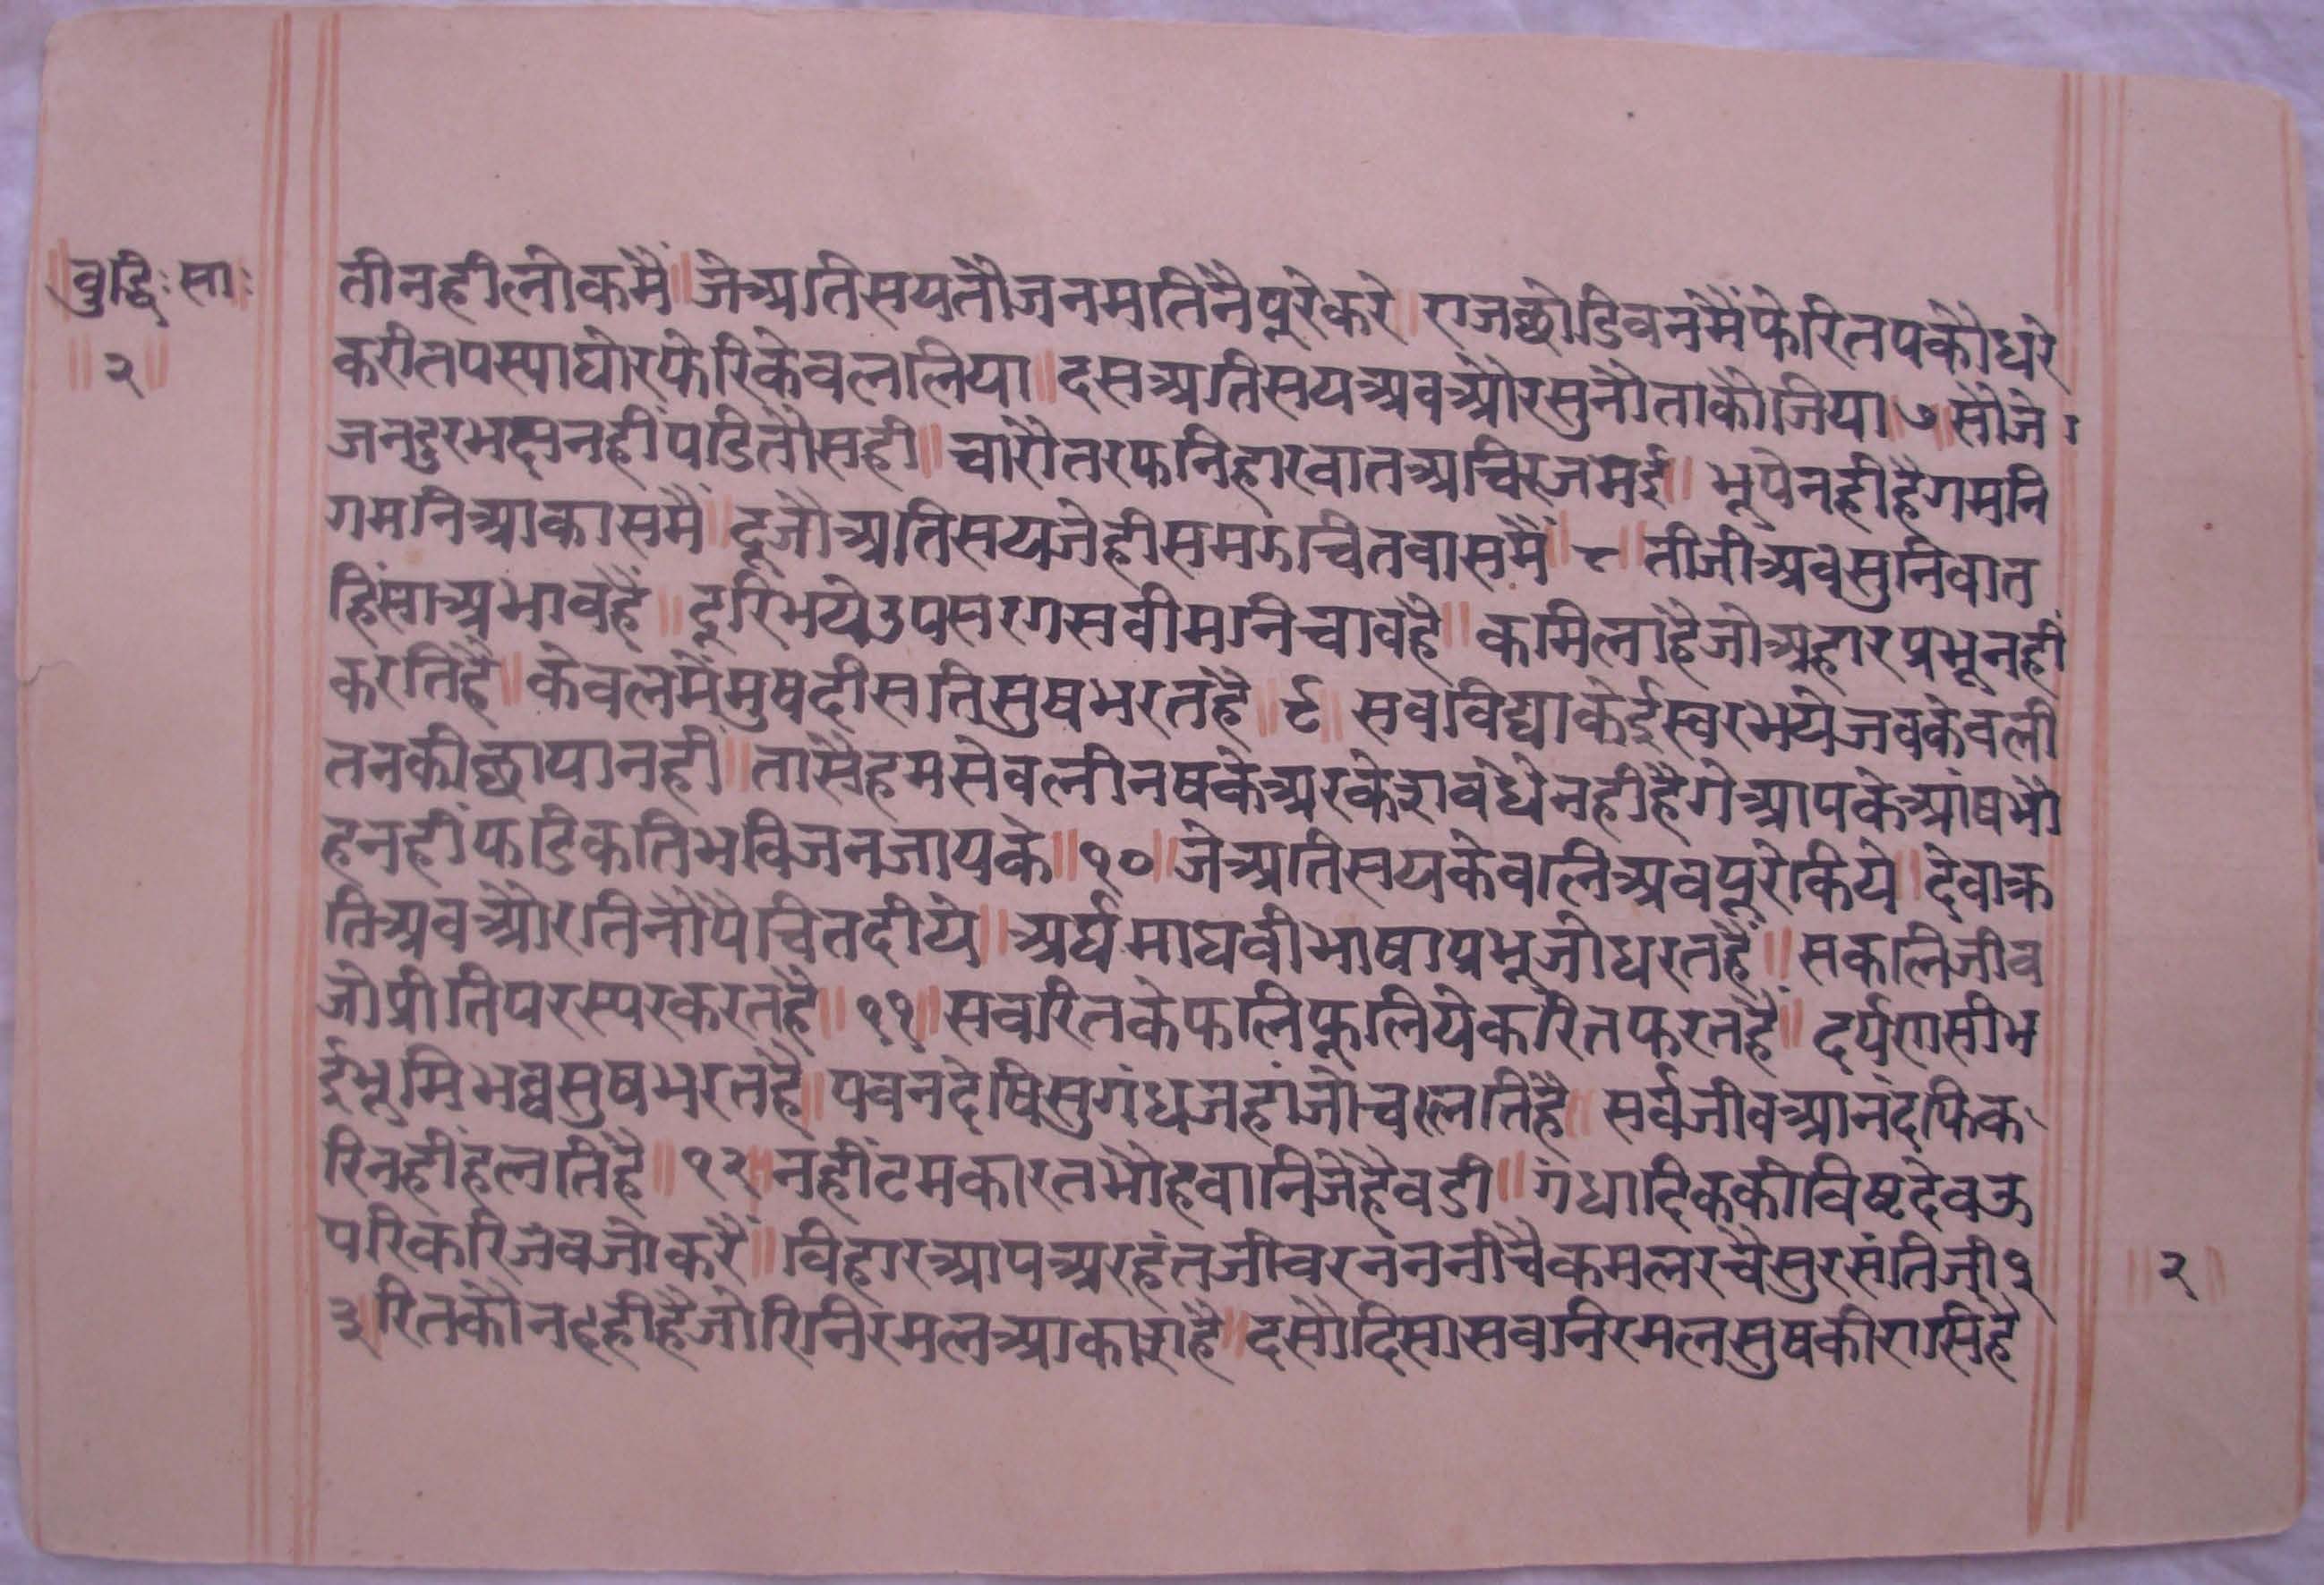 वुद्धि: सा:
२
तीनहीलोकमैं॥जेअतिसयतौजनमतिनैपूरेकरे॥राजछोडिवनमैंफेरितपकौधरे
करीतपस्याघोरफेरिकेवललिया॥दसअतिसयअवऔरसुनौताकौजिया॥७॥सौजे
जनदुरभक्षनहींपडितौसही॥चारौतरफनिहारवातअचिरजमई॥भूपेनहीहैगमनि
गमनिआकासमैं॥दूजौअतिसयजेहीसमऊचितवासमैं॥८॥तीजीअवसुनिवात
हिंसाअभावहैं॥दूरिभयेउपसरगसवीमनिचावहै॥कमिलाहैजोअहारप्रभूनहीं
करतिहै॥केवलमैंमुषदीसतिसुषभरतहै॥९॥सवविद्याकेईस्वरभयेजवकेवली
तनकीछायानहीं॥तासैहमसेवलीनषकेअरकेशवधेनहीहैगेआपकेआंषभौ
हनहींफडिकतिभविजनजायके॥१०॥जेअतिसयकेवलिअवपूरेकिये॥देवाक्र
तिअवऔरतिनौपैचितदीये॥अर्घमाघवीभाषाप्रभूजीधरतहैं॥सकलिजीव
जोप्रीतिपरस्परकरतहै॥११॥सवरितकेफलिफूलियेकरितफरतहै॥दर्पणसीभ
ईभूमिभव्वसुषभरतहै॥पवनदेषिसुगंधजहांजोचलतिहै॥सर्वजीवआनंदफिक
रिनहींहलतिहै॥१२॥नहींटमकारतभौहवानिजेहैवडी॥गंधादिककीविष्टदेवऊ
परिकरिजवजोकरैं॥विहारआपअरहंतजीवरनननीचैकमलरचैसुरसंतिजी॥१
३॥रितकौनहहीहैजोरिनिरमलआकाशहै॥दसौदिसासवनिरमलसुषकीरासिहै
२